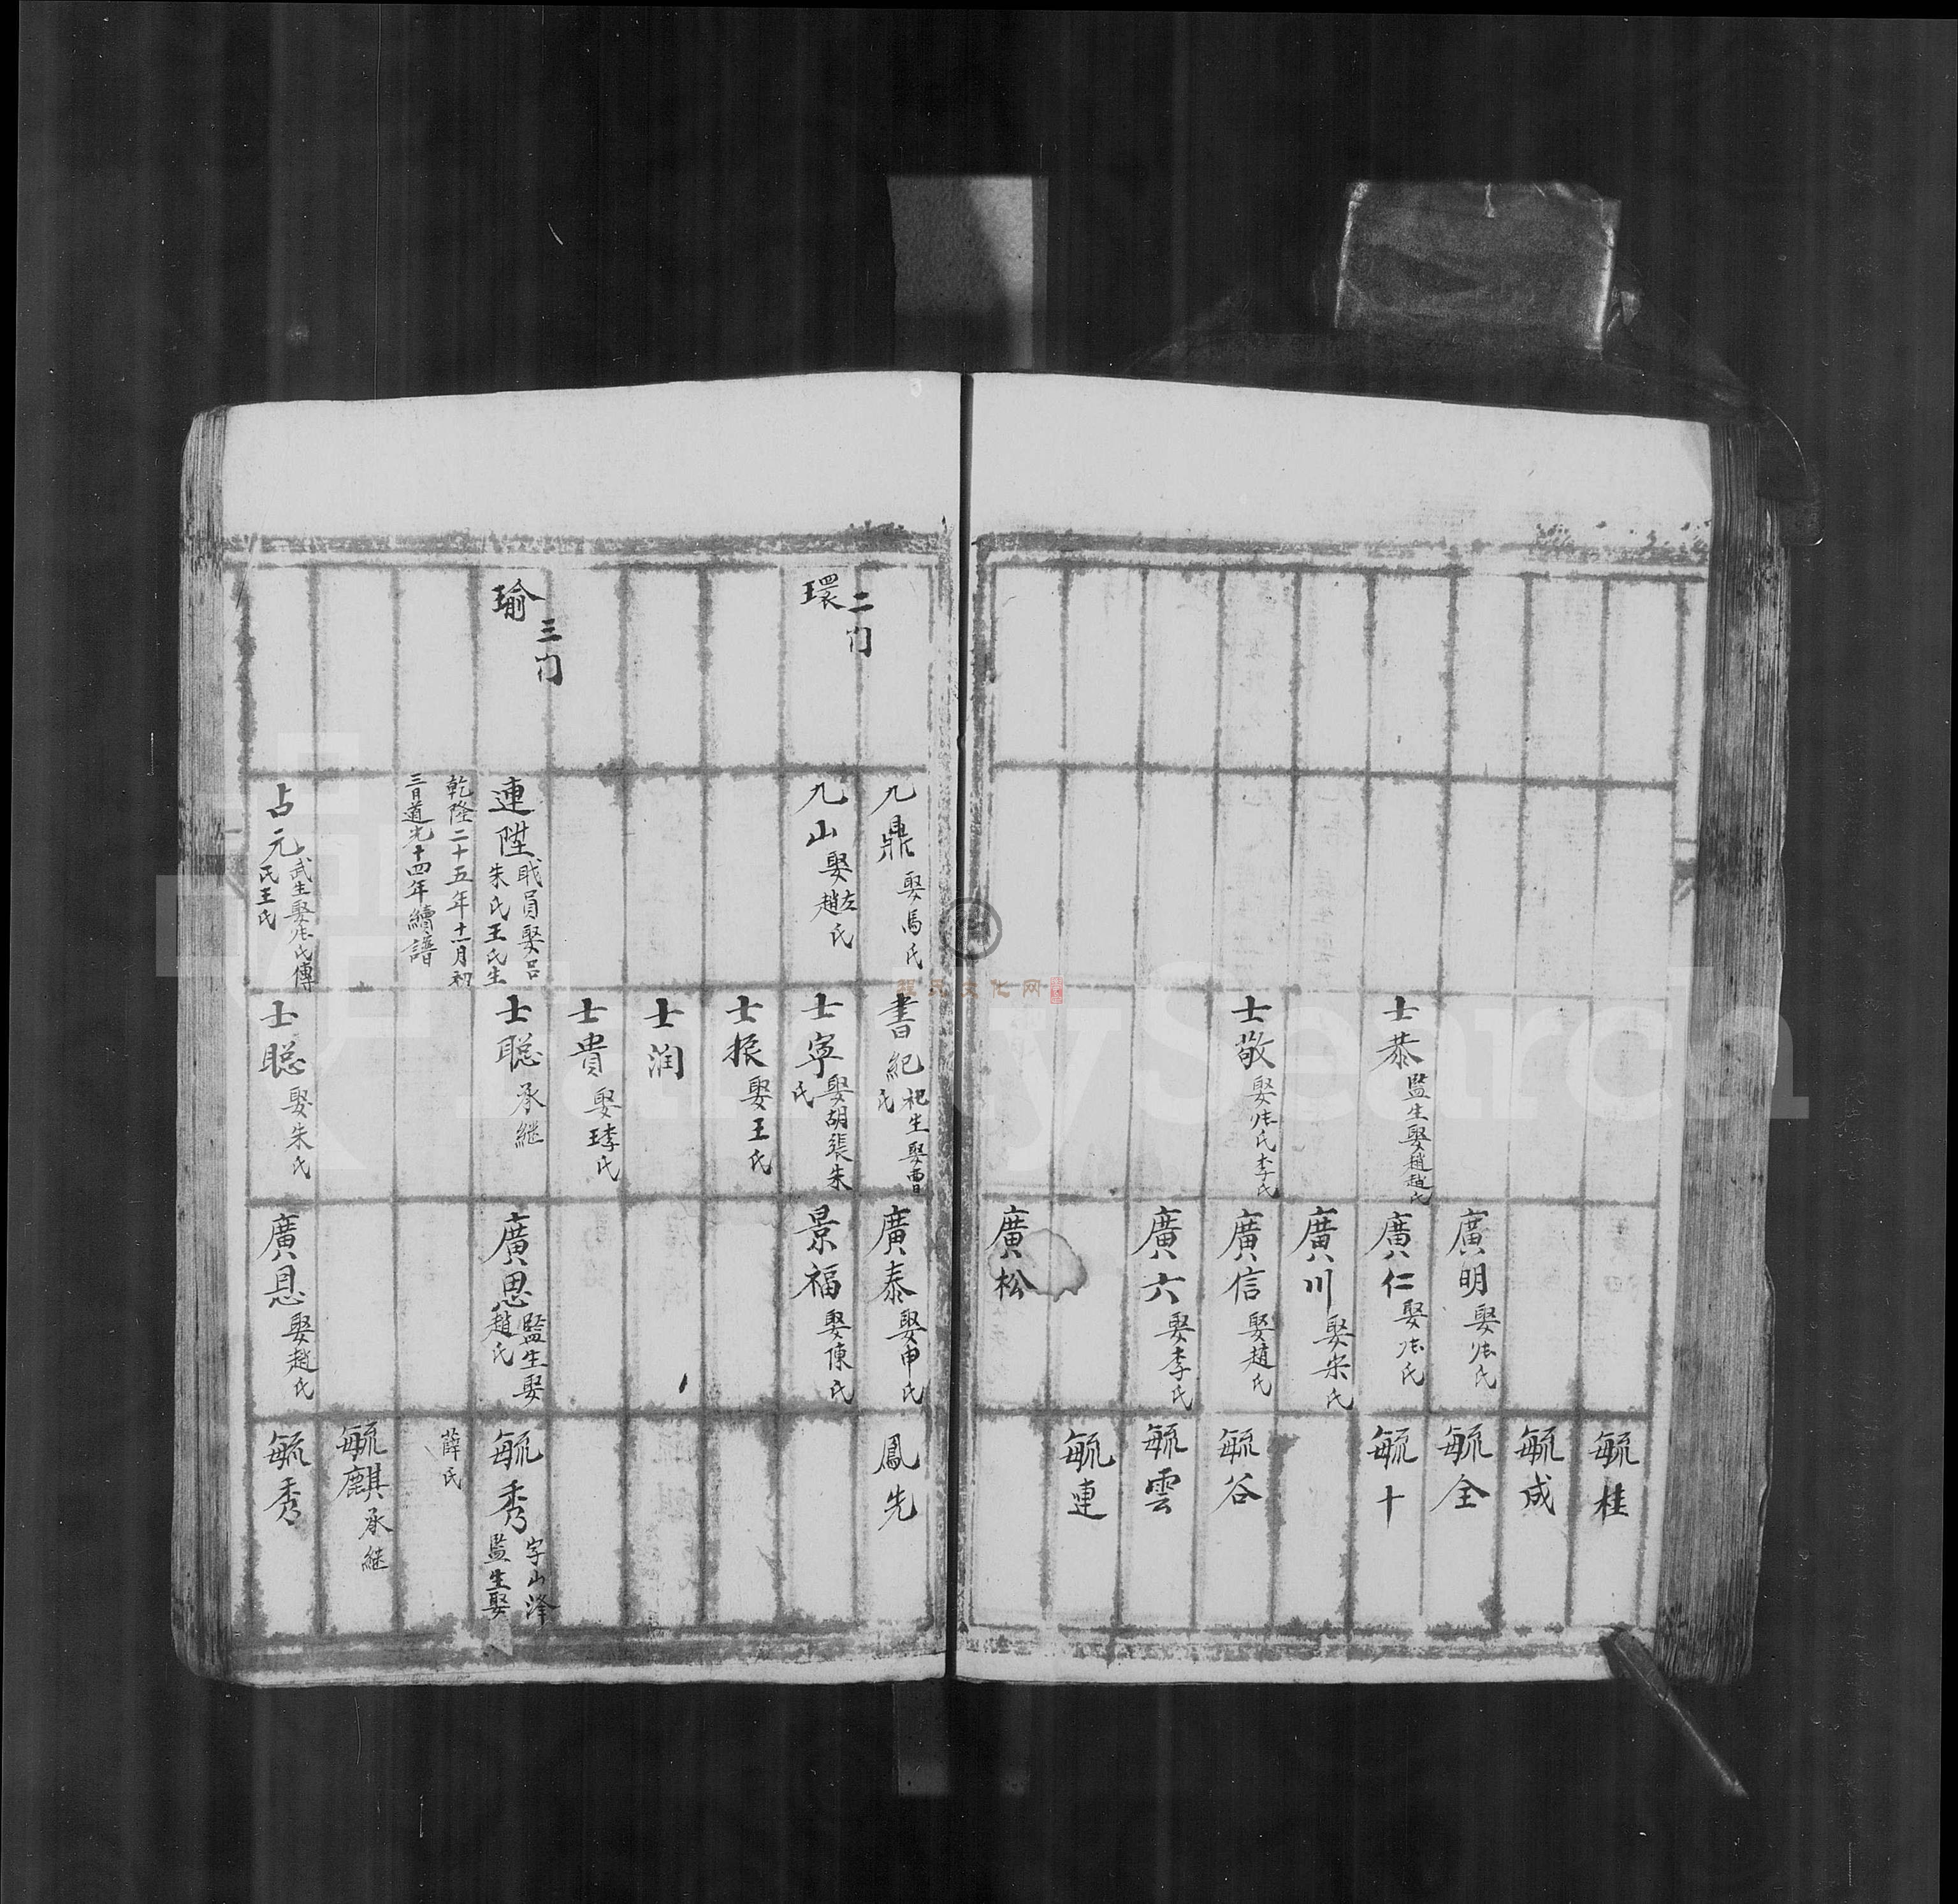 士恭 監生娶趙趙氏
士敬 娶張氏李氏
廣明 娶張氏
廣仁 娶張氏
廣川 娶宋氏
廣信 娶趙氏
廣六 娶李氏
廣松
毓桂
毓成
毓全
毓十
毓谷
毓雲
毓連
二门
環
三门
瑜
九鼎 娶馬氏
九山 娶左趙氏
連陞 職員娶呂
朱氏王氏生
乾隆二十五年十一月初
三日道光十四年續譜
占元 武生娶張氏傅
氏王氏
書紀 祀生娶曹
氏
士寧 娶胡張朱
氏
士振 娶王氏
士潤
士貴 娶李氏
士聡 承継
士聡 娶朱氏
廣泰 娶申氏
景福 娶陳氏
廣恩 監生娶
趙氏
廣恩 娶趙氏
鳳先
毓秀 字山澤
監生娶
薛氏
毓麒 承継
毓秀
FamilySearch